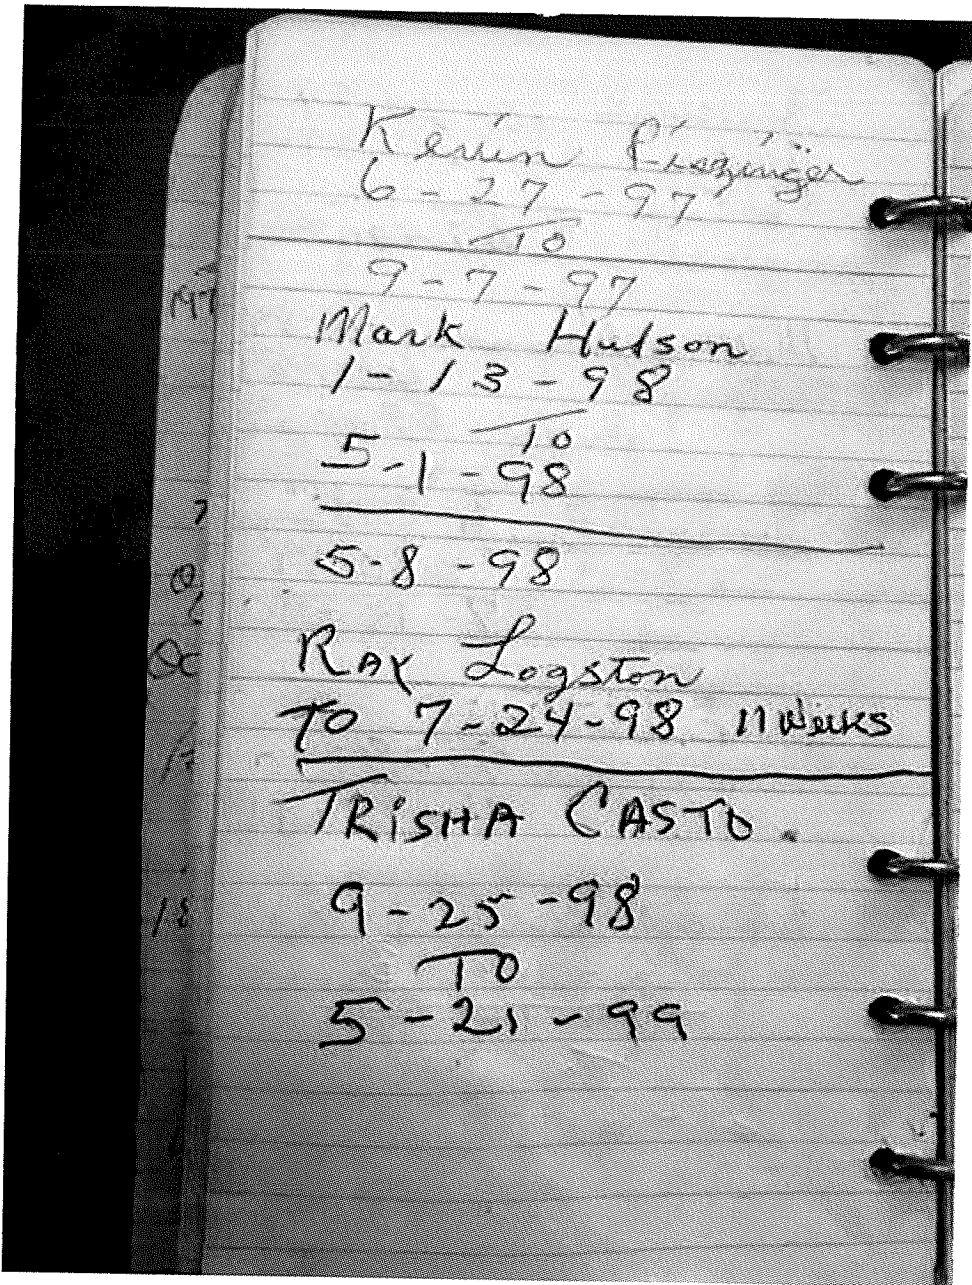 Kevin
6-27-97
TO
9-7-97
Mark Hudson
1-13-98
To
5-1-98
5-8-98
RAY Logston
TO 7-24-98 11 Weeks
TRiSHA CASTO.
9-25-98
TO
5-21-99